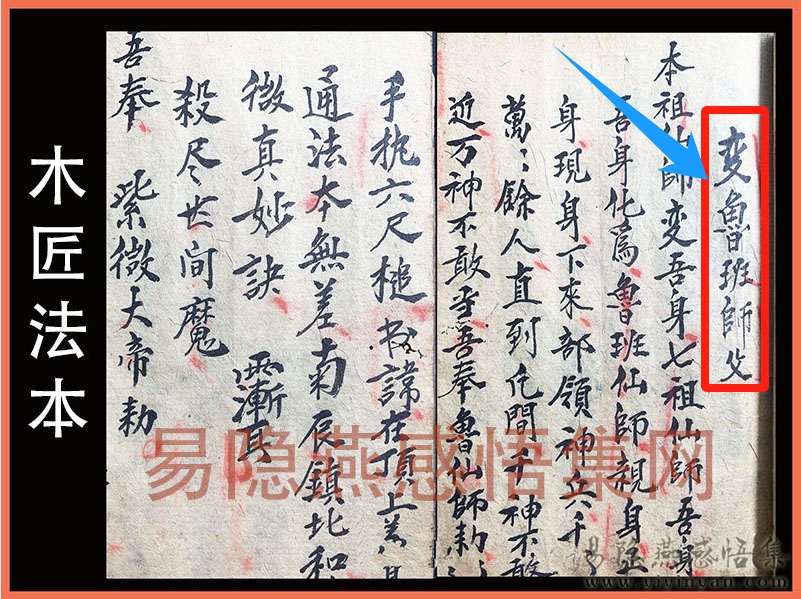 木匠法本
变魯班師父
本祖仙師变吾身七祖仙師吾身
吾身化爲魯班仙師親身在
身現身下來部領神兵千
萬々餘人直到凡間千神不敢
近万神不敢当吾奉魯仙師勅令
手执六尺槌 书諱在頂上盖
通法本無差南辰鎮北和
微真妙訣
殺尽世间魔
吾奉 紫微大帝勅
易隐燕感悟集网
易隐燕感悟集
www.yiyinyan.com